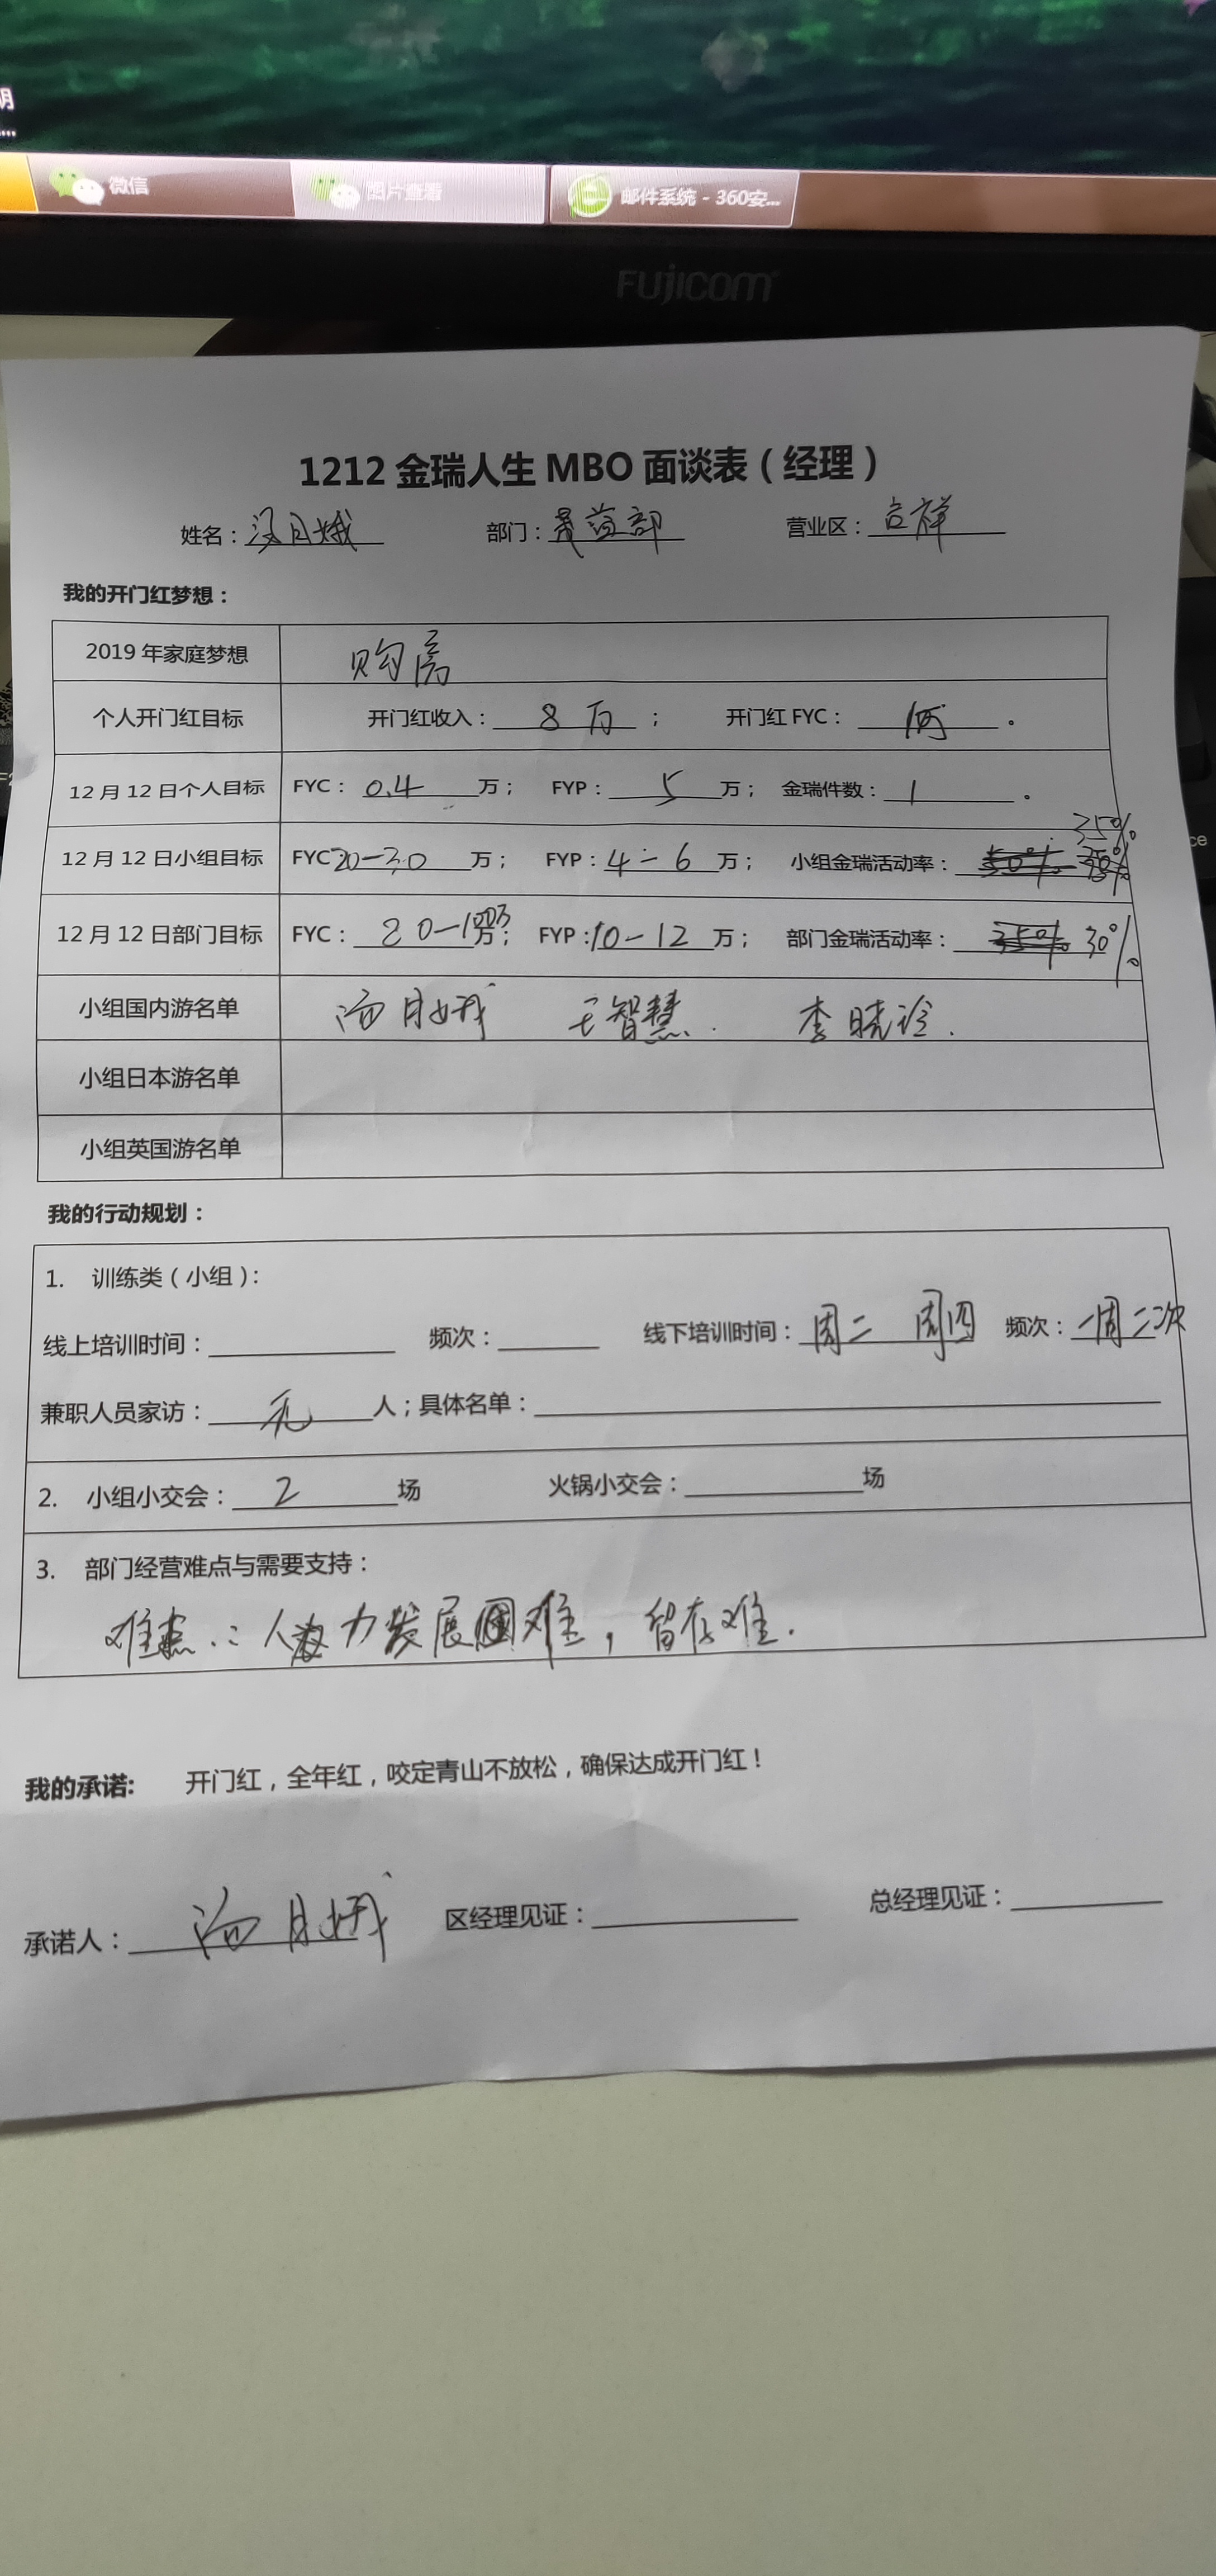 明
...
微信 图片查看 邮件系统 - 360安...
FUJICOM
1212 金瑞人生 MBO 面谈表（经理）
姓名：汤月娥 部门：部 营业区：吉祥
我的开门红梦想：
2019 年家庭梦想 购房
个人开门红目标 开门红收入：8万； 开门红 FYC：。
12 月 12 日个人目标 FYC：0.4万； FYP：5万； 金瑞件数：1。
35%
12 月 12 日小组目标 FYC 20-30万； FYP：4-6万； 小组金瑞活动率：
12 月 12 日部门目标 FYC：80-100万万； FYP：10-12万； 部门金瑞活动率：35% 30%
小组国内游名单 汤月娥 王智慧. 李晓玲.
小组日本游名单
小组英国游名单
我的行动规划：
1. 训练类（小组）：
线上培训时间： 频次： 线下培训时间：周二 周四 频次：一周二次
兼职人员家访：无人；具体名单：
2. 小组小交会：2场 火锅小交会：场
3. 部门经营难点与需要支持：
难点：人力发展困难，留存难.
我的承诺: 开门红，全年红，咬定青山不放松，确保达成开门红！
承诺人：汤月娥 区经理见证： 总经理见证：